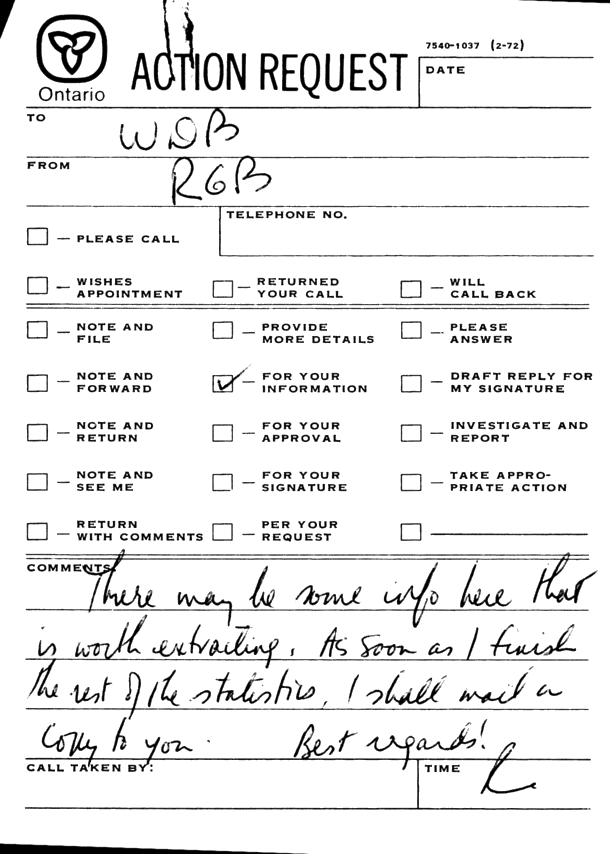 7540-1037 (2-72)
Ontario
ACTION REQUEST
DATE
TO
WDB
FROM
RGB
TELEPHONE NO.
— PLEASE CALL
— WISHES APPOINTMENT
— RETURNED YOUR CALL
— WILL CALL BACK
— NOTE AND FILE
— PROVIDE MORE DETAILS
— PLEASE ANSWER
— NOTE AND FORWARD
— FOR YOUR INFORMATION
— DRAFT REPLY FOR MY SIGNATURE
— NOTE AND RETURN
— FOR YOUR APPROVAL
— INVESTIGATE AND REPORT
— NOTE AND SEE ME
— FOR YOUR SIGNATURE
— TAKE APPRO-PRIATE ACTION
— RETURN WITH COMMENTS
— PER YOUR REQUEST
COMMENTS
There may be some info here that
is worth extracting. As soon as I finish
the rest of the statistics, I shall mail a
copy to you. Best regards!
CALL TAKEN BY:
TIME
R